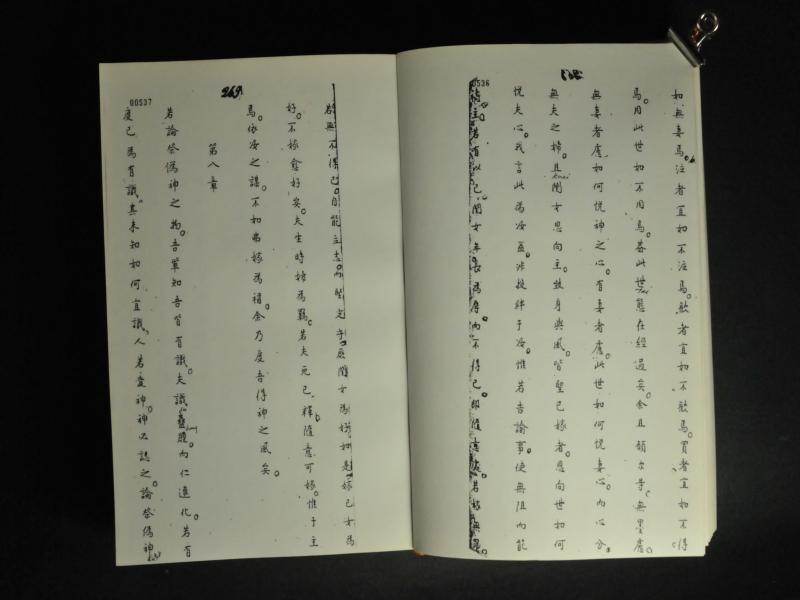 00536
如無妻焉泣者宜如不泣焉歡者宜如不歡焉買者宜如不得
焉用此世如不用焉蓋此世態在經過矣余且願尔等無墨慮
無妻者慮如何悅神之心有妻者慮此世如何悅妻心內心分
無夫之婦且閨女思向主故身與風皆聖已嫁者思向世如何
悅夫心我言此為汝益非投絆于汝惟若告諭事使無阻而能
主若有以己閨女年長為辱而不得已即隨意若嫁無
00537
269
無不得已自能主志而堅定守厥閨女為好如是嫁己女為
好不嫁愈好矣夫生時婦為縶若夫死已釋隨意可嫁惟于主
焉依汝之謀不如弗嫁為福余乃度吾得神之風矣
第八章
若論祭偽神之物吾輩知吾皆有識夫識內仁進化若有
度己為有識其未知如何宜識人若愛神神必認之論祭偽神